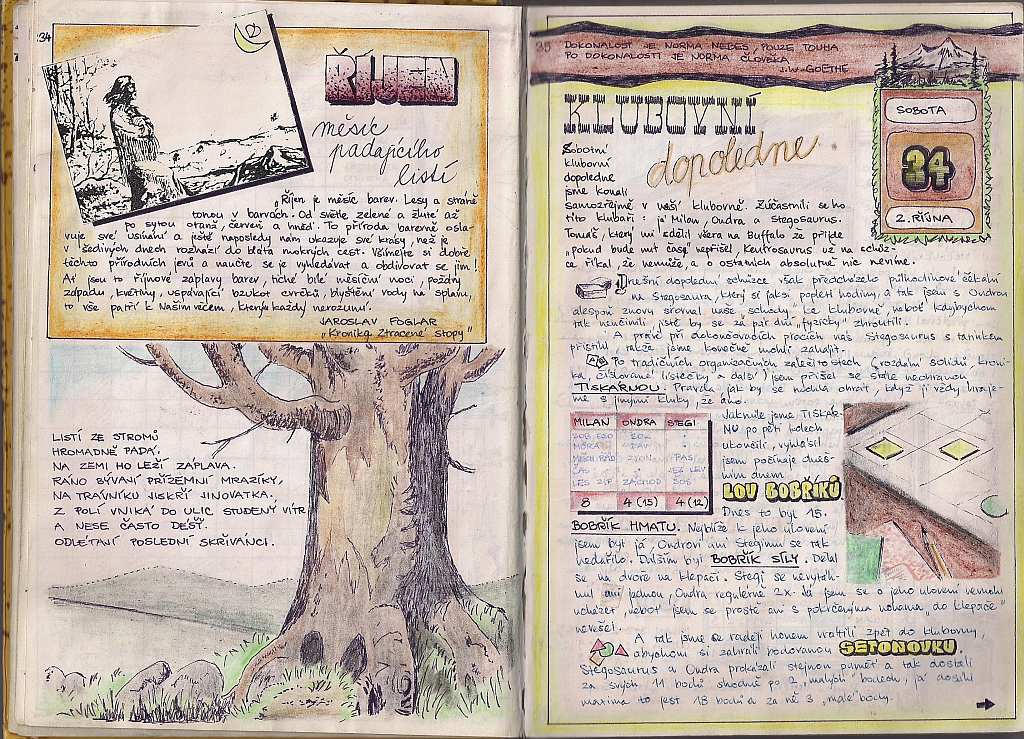 34
ŘÍJEN
měsíc
padajícího
listí
„Říjen je měsíc barev. Lesy a stráně
tonou v barvách. Od světle zelené a žluté až
po sytou oranž, červeň a hněď. To příroda barevně osla-
vuje své usínání a ještě naposledy nám ukazuje své krásy, než je
v šedivých dnech rozhází do bláta mokrých cest. Všímejte si dobře
těchto přírodních jevů a naučte se je vyhledávat a obdivovat se jim!
Ať jsou to říjnové záplavy barev, tiché bílé měsíční noci, požáry
západu, květiny, uspávající bzukot cvrčků, blyštění vody na splavu,
to vše patří k našim věcem, kterým každý nerozumí.
JAROSLAV FOGLAR
„Kronika Ztracené stopy"
LISTÍ ZE STROMŮ
HROMADNĚ PADÁ,
NA ZEMI HO LEŽÍ ZÁPLAVA.
RÁNO BÝVAJÍ PŘÍZEMNÍ MRAZÍKY,
NA TRÁVNÍKU JISKŘÍ JINOVATKA.
Z POLÍ VNIKÁ DO ULIC STUDENÝ VÍTR
A NESE ČASTO DÉŠŤ.
ODLÉTAJÍ POSLEDNÍ SKŘIVÁNCI.
35
DOKONALOST JE NORMA NEBES, POUZE TOUHA
PO DOKONALOSTI JE NORMA ČLOVĚKA
J.W. GOETHE
SOBOTA
34
2. ŘÍJNA
KLUBOVNÍ
dopoledne.
Sobotní
klubovní
dopoledne
jsme konali
samozřejmě v naší klubovně. Zúčastnili se ho
tito klubaři: já Milan, Ondra a Stegosaurus.
Tomáš, který mi sdělil včera na Buffalo že přijde
„pokud bude mít čas" nepřišel, Kentrosaurus už na schůz-
ce říkal, že nemůže, a o ostatních absolutně nic nevíme.
Dnešní dopolední schůzce však předcházelo půlhodinové čekání
na Stegosaura, který si jaksi popletl hodiny, a tak jsem s Ondrou
alespoň znovu srovnal naše schody ke klubovně, neboť kdybychom
tak neučinili, jistě by se za pár dní „fyzicky" zhroutili.
A právě při dokončovacích pracích nás Stegosaurus s tatínkem
přistihl takže jsme konečně mohli zahájit.
Po tradičních organizačních záležitostech (rozdání solidů, kroni-
ka, číslované lístečky a další) jsem přišel se stále neohranou
TISKÁRNOU. Pravda jak by se mohla ohrát, když ji vždy hraje-
me s jinými kluky, že ano.
MILAN ONDRA STEGI
8 4 (15) 4 (12)
Jakmile jsme TISKÁR-
NU po pěti kolech
ukončili, vyhlásil
jsem počínaje dneš-
ním dnem
LOV BOBŘÍKŮ.
Dnes to byl 15.
BOBŘÍK HMATU. Nejblíže k jeho ulovení
jsem byl já, Ondrovi ani Stegimu se tak
nedařilo. Dalším byl BOBŘÍK SÍLY. Dělal
se na dvoře na klepači. Stegi se nevytáh-
nul ani jednou, Ondra regulérně 2x. Já jsem se o jeho ulovení nemohl
ucházet, neboť jsem se prostě ani s pokrčenýma nohama „do klepače"
nevešel.
A tak jsme se raději honem vrátili zpět do klubovny,
abychom si zahráli bodovanou SETONOVKU.
Stegosaurus a Ondra prokázali stejnou paměť a tak dostali
za svých 11 bodů shodně po 2 „malých" bodech, já dosáhl
maxima to jest 18 bodů a za ně 3 „malé" body.